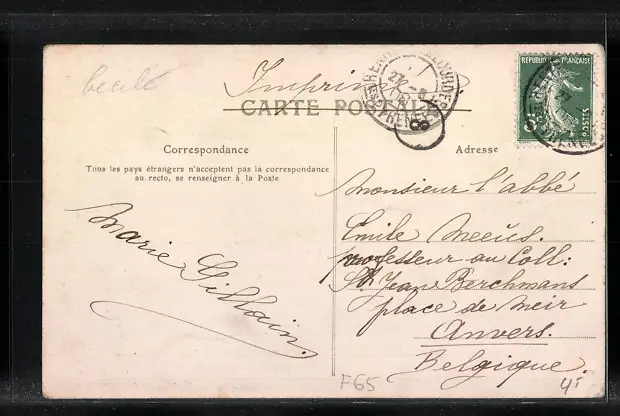 Cecile
Imprimé
CARTE POSTALE
RÉPUBLIQUE FRANÇAISE
POSTES
8
Correspondance
Adresse
Tous les pays étrangers n'acceptent pas la correspondance
au recto, se renseigner à la Poste
Marie Gillain.
Monsieur l'abbé
Emile Meeùs.
professeur au Coll:
St Jean Berchmans
place de Meir
Anvers.
Belgique.
F65